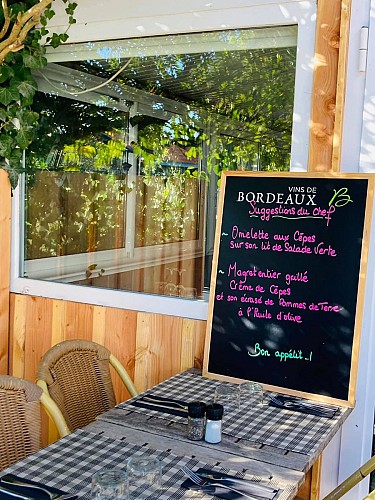 VINS DE
BORDEAUX
Suggestions du chef
~ Omelette aux Cèpes
Sur son lit de Salade Verte
~ Magret entier grillé
Crème de Cèpes
et son écrasé de Pommes de Terre
à l'Huile d'olive
Bon appétit..!